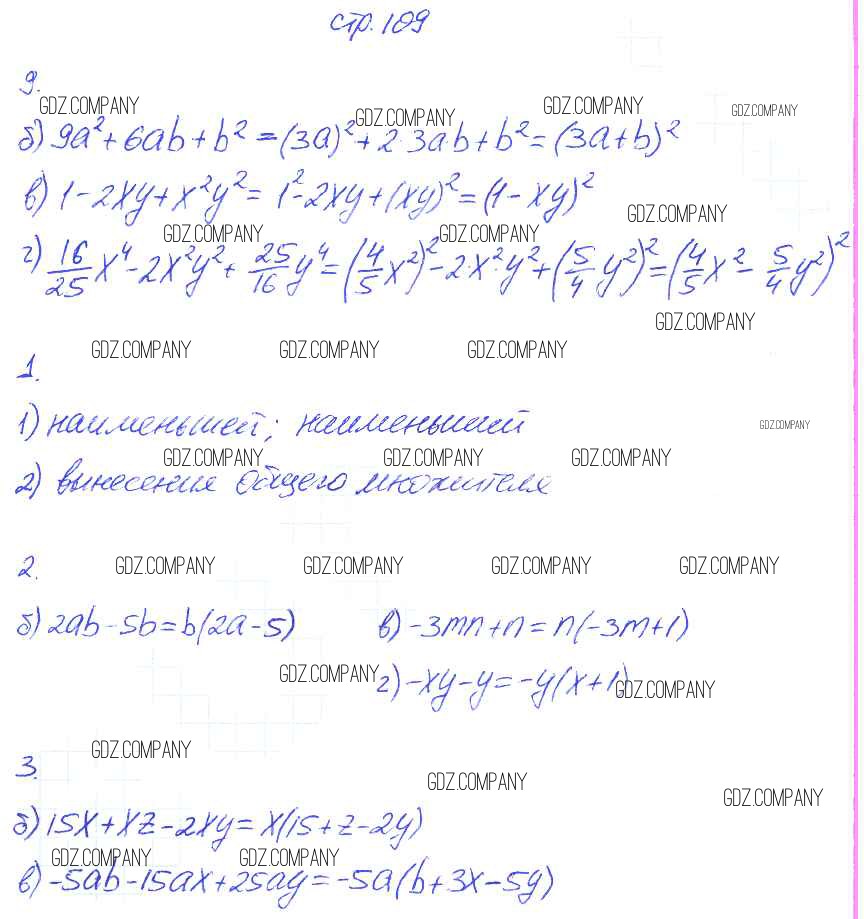 стр. 109
9.
GDZ.COMPANY GDZ.COMPANY GDZ.COMPANY GDZ.COMPANY
б) 9a² + 6ab + b² = (3a)² + 2·3ab + b² = (3a+b)²
в) 1 - 2xy + x²y² = 1² - 2xy + (xy)² = (1 - xy)²
GDZ.COMPANY
GDZ.COMPANY GDZ.COMPANY
г) 16/25 x⁴ - 2x²y² + 25/16 y⁴ = (4/5 x²)² - 2·x²·y² + (5/4 y²)² = (4/5 x² - 5/4 y²)²
GDZ.COMPANY
GDZ.COMPANY GDZ.COMPANY GDZ.COMPANY
1.
1) наименьшей; наименьший
GDZ.COMPANY
GDZ.COMPANY GDZ.COMPANY GDZ.COMPANY
2) вынесения общего множителя
2.
GDZ.COMPANY GDZ.COMPANY GDZ.COMPANY GDZ.COMPANY
б) 2ab - 5b = b(2a - 5) в) -3mn + n = n(-3m + 1)
GDZ.COMPANY г) -xy - y = -y(x + 1) GDZ.COMPANY
GDZ.COMPANY
3.
GDZ.COMPANY GDZ.COMPANY
б) 15x + xz - 2xy = x(15 + z - 2y)
GDZ.COMPANY GDZ.COMPANY
в) -5ab - 15ax + 25ay = -5a(b + 3x - 5y)